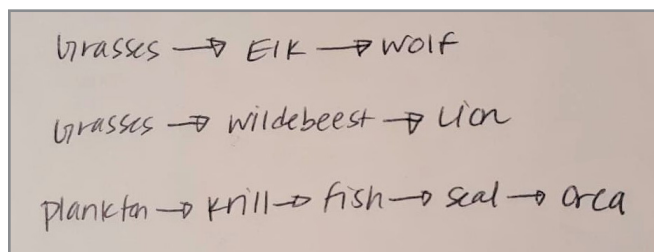 Grasses → Elk → Wolf
Grasses → wildebeest → Lion
plankton → krill → fish → seal → orca